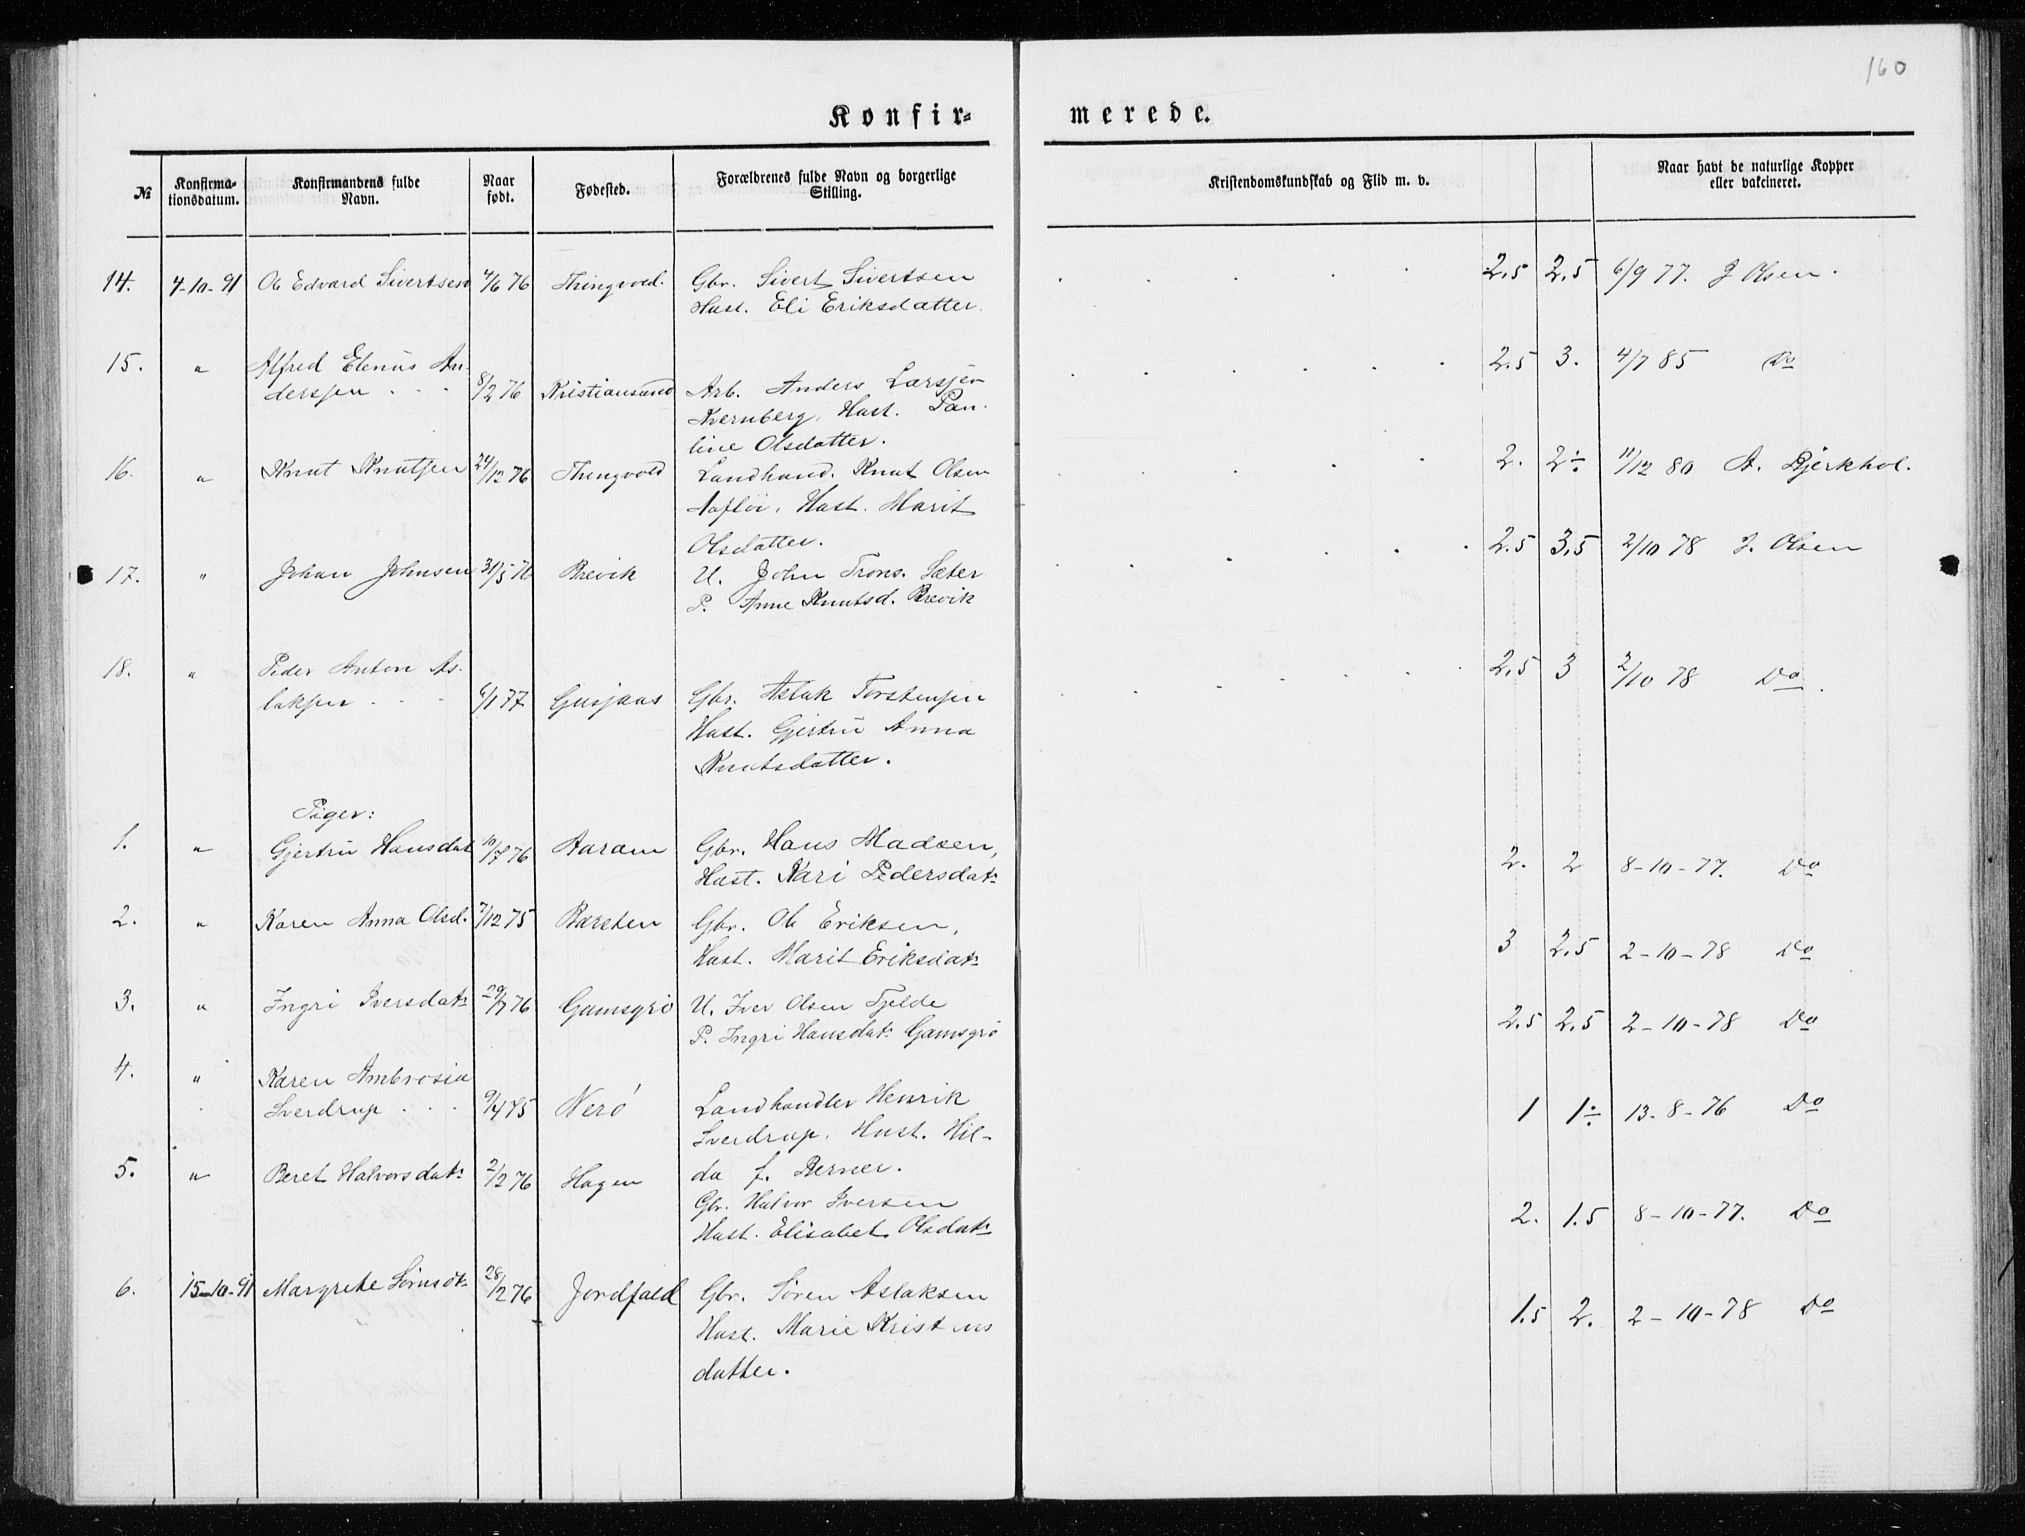 160
Konfir-
merede.
№
Konfirma-
tionsdatum.
Konfirmandens fulde
Navn.
Naar
født.
Fødested.
Forældrenes fulde Navn og borgerlige
Stilling.
Kristendomskundskab og Flid m. v.
Naar havt de naturlige Kopper
eller vakcineret.
14. 4-10-91 Ole Edvard Sivertsen 4/6 76 Thingvold. Gbr. Sivert Sivertsen 2.5 2.5 6/9 77. J Olsen.
Hust. Eli Eriksdatter.
15. " Alfred Elenus An-
derssen 8/2 76 Kristiansund Arb. Anders Larssen 2.5 3. 4/7 85 Do
Kvernberg, Hust. Pau-
line Olsdatter.
16. " Knut Knutsen 24/12 76 Thingvold Landhand. Knut Olsen 2. 2÷ 11/12 80 A. Bjerkhol.
Hust. Marit
Olsdatter.
17. " Johan Johnsen 31/5 76 Brevik U. John Trons. Sæter 2.5 3.5 2/10 78 J. Olsen
P. Anne Knutsd. Brevik
18. " Peder Anton As-
laksen 6/1 77 Gusjaas Gbr. Aslak Torstensen 2.5 3 2/10 78 Do
Hust. Gjertru Anna
Knutsdatter.
Piger:
1. " Gjertru Hansdat 10/7 76 Aaram Gbr. Hans Madsen, 2. 2 8-10-77. Do
Hust. Kari Pedersdat:
2. " Karen Anna Olsd. 7/12 75 Barsten Gbr. Ole Eriksen, 3 2.5 2-10-78 Do
Hust. Marit Eriksdat:
3. " Ingri Iversdat: 29/7 76 Gamsgrø U. Iver Olsen Fjelde 2.5 2.5 2-10-78 Do
P. Ingri Hansdat: Gamsgrø
4. " Karen Ambrosia
Sverdrup 9/4 75 Nerø Landhandler Henrik 1 1÷ 13-8-76 Do
Sverdrup. Hust. Hil-
da f. Berner.
5. " Beret Halvorsdat: 2/2 76 Hagen Gbr. Halvor Iversen 2. 1.5 8-10-77. Do
Hust. Elisabet Olsdat:
6. 15-10-91 Margrete Sørnsdt: 28/2 76 Jordfald Gbr. Søren Aslaksen 1.5 2. 2-10-78 Do
Hust. Marie Kristens
datter.